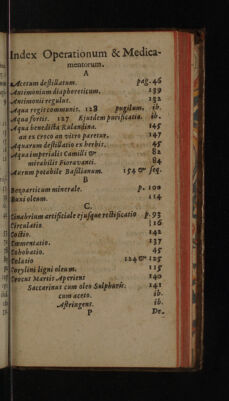 Index Operationum & Medica-
mentorum.
A
Acetum destillatum. pag. 46
Antimonium diaphoreticum. 139
Antimonii regulus. 132
Aqua regis communis. 128 pugilum. ib.
Aqua fortis. 127 Ejusdem purificatio. ib.
Aqua benedicta Rulandina. 145
an ex croco an vitro paretur. 147
Aquarum destillatio ex herbis. 45
Aqua imperialis Camilli & 82
mirabilis Fioravanti. 84
Aurum potabile Basilianum. 154 & seq.
B
Bezoarticum minerale. p. 100
Buxi oleum. 114
C.
Cinabrium artificiale ejusque rectificatio p. 93
Circulatio 116
Coctio. 142
Cementatio. 137
Cohobatio. 45
Colatio 124 & 125
Coryleni ligni oleum. 115
Crocus Martis Aperiens 140
Saccarinus cum oleo Sulphuris. 141
cum aceto. ib.
Astringens. ib.
P De-